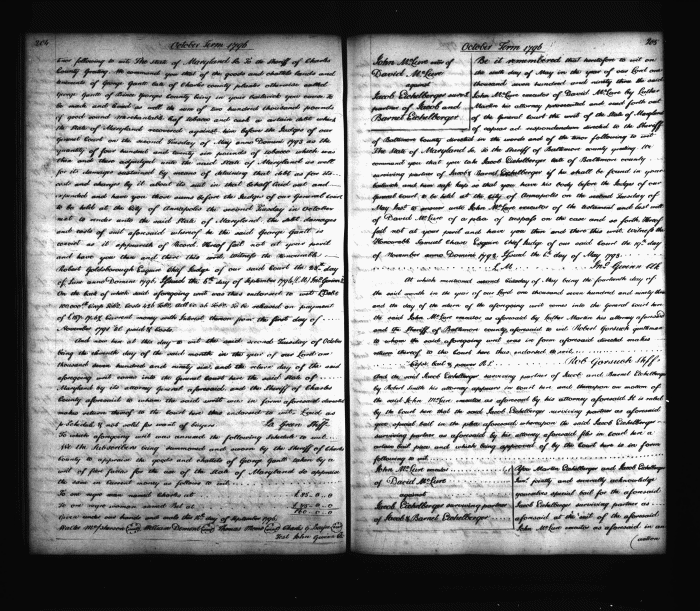 204
October Term 1796
was following to wit. The State of Maryland ss To the Sheriff of Charles
County Greeting. We command you that of the goods and chattels lands and
tenements of George Gantt late of Charles county planter otherwise called
George Gantt of Prince Georges County being in your bailiwick you cause to
be made and levied as well the sum of two hundred thousand pounds
of good sound merchantable leaf tobacco and cash a certain debt which
the State of Maryland recovered against him before the Judges of our
General Court on the second Tuesday of May anno Domini 1793 as the
quantity of four hundred and twenty six pounds of tobacco which was
then and there adjudged unto the said State of Maryland as well
for its damages sustained by means of detaining that debt as for its
costs and charges by it about its suit in that behalf laid out and
expended and have you those sums before the Judges of our General Court
to be held at the City of Annapolis the second Tuesday in October
next to render unto the said State of Maryland, the debt damages
and costs of suit aforesaid whereof he the said George Gantt is
convict as it appeareth of Record. Hereof fail not at your peril
and have you then and there this writ. Witness the Honourable
Robert Goldsborough Esquire Chief Judge of our said Court the 24th day
of June anno Domini 1796. Issued the 6th day of September 1796.
On the back of which said aforegoing writ was thus endorsed to wit
November 1792 &c paid & Costs.
And now here at this day to wit the said second Tuesday of October
being the eleventh day of the said month in the year of our Lord one
thousand seven hundred and ninety six and the return day of the said
aforegoing writ comes into the General Court here the said State of
Maryland by its attorney General aforesaid and the Sheriff of Charles
County aforesaid to whom the said writ was in form aforesaid directed
makes return thereof to the Court here thus endorsed to wit. Laid as
p Schedule & not sold for want of buyers
Green Sheff.
To which aforegoing writ was annexed the following Schedule to wit.
We the Subscribers being summoned and sworn by the Sheriff of Charles
County to appraise the goods and chattels of George Gantt taken by a
writ of fieri facias for the use of the State of Maryland do appraise
the same in Current money as follows to wit
To one negro man named Charles at £85..0..0
Given under our hands and seals the day of September 1796
Test John Gwinn
205
October Term 1796
John McLure
David McLure
against
Jacob Eichelberger surviv
partner of Jacob and
Barnet Eichelberger
Be it remembered that heretofore to wit on
the sixth day of May in the year of our Lord one
thousand seven hundred and ninety three the said
John McLure of David McLure by Luther
Martin his attorney prosecuted and sued forth out
of the General Court the writ of the State of Maryland
of capias ad respondendum directed to the Sheriff
of Baltimore County directed in the words and of the tenor following to wit
The State of Maryland ss To the Sheriff of Baltimore county greeting. We
command you that you take Jacob Eichelberger late of Baltimore county
surviving partner of Jacob & Barnet Eichelberger if he shall be found in your
bailiwick and him safe keep so that you have his body before the Judges of our
General Court to be held at the City of Annapolis on the second Tuesday of
May Inst to answer unto John McLure
of David McLure of a plea of trespass on the case and so forth. Hereof
fail not at your peril and have you then and there this writ. Witness the
Honourable Samuel Chase Esquire Chief Judge of our said Court the day
of November anno Domini 1792. Issued the 6th day of May 1793.
Jno Gwinn Clk
At which mentioned second Tuesday of May being the fourteenth day of
the said month in the year of our Lord one thousand seven hundred and ninety three
and the day of the return of the aforegoing writ comes into the General Court here
the said John McLure as aforesaid by Luther Martin his attorney aforesaid
and the Sheriff of Baltimore county aforesaid to wit Robert Gorsuch gentleman
to whom the said aforegoing writ was in form aforesaid directed makes
return thereof to the Court here thus endorsed to wit
Rob Gorsuch Sheff.
And the said Jacob Eichelberger surviving partner of Jacob and Barnet Eichelberger
by Robert Smith his attorney appears in Court here and thereupon on motion of
the said John McLure as aforesaid by his attorney aforesaid it is ruled
by the Court here that the said Jacob Eichelberger surviving partner as aforesaid
give special bail in the plea aforesaid whereupon the said Jacob Eichelberger
surviving partner as aforesaid by his attorney aforesaid files in Court here a
certain bail piece and which being approved of by the Court here is in form
following to wit
John McLure
of David McLure
against
Jacob Eichelberger surviving partner
of Jacob & Barnet Eichelberger
Martin Eichelberger and Jacob Eichelberger
Junr. jointly and severally acknowledge
themselves special bail for the aforesaid
Jacob Eichelberger surviving partner as
aforesaid at the suit of the aforesaid
John McLure as aforesaid in an
action